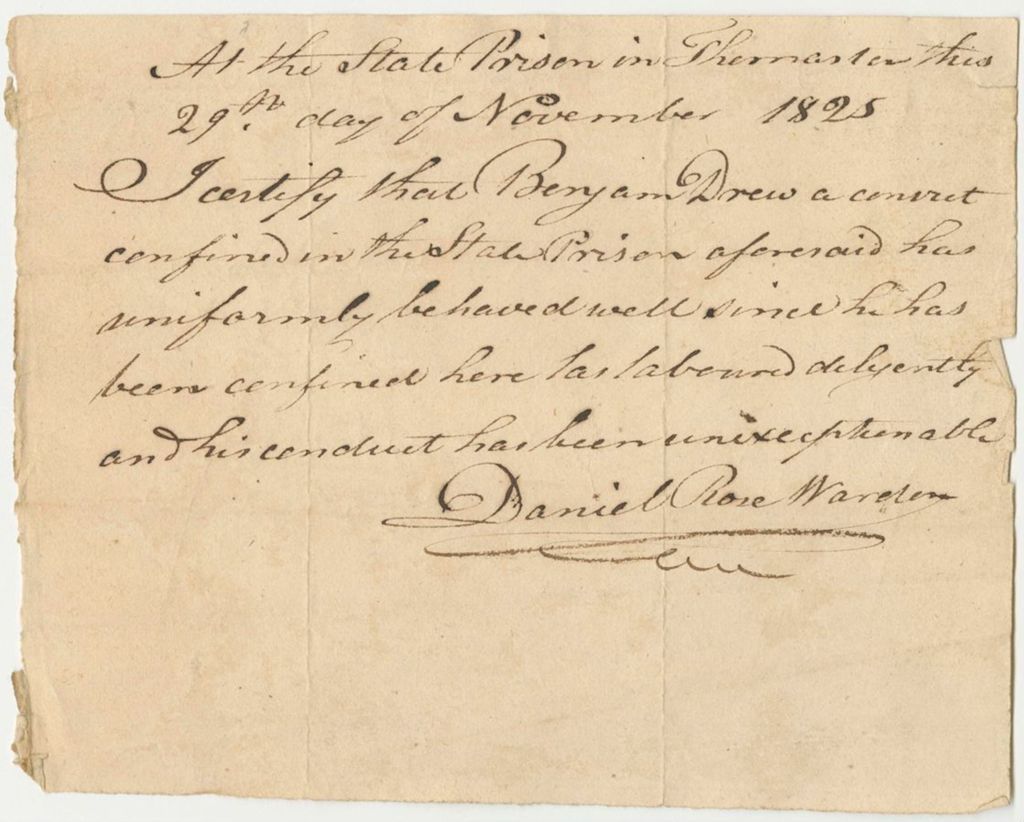 At the State Prison in Thomaston this
29th. day of November 1825
I certify that Benjam Drew a convict
confined in the State Prison aforesaid has
uniformly behaved well since he has
been confined here has laboured diligently
and his conduct has been unexceptionable
Daniel Rose Warden